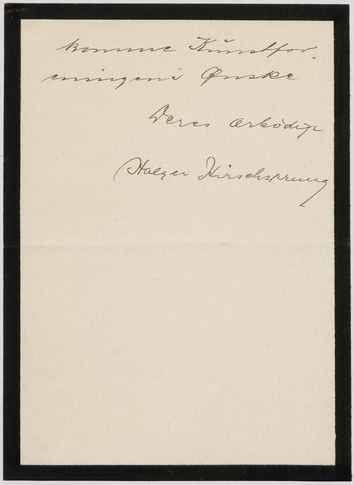 komme Kunstfor,
eningens Ønske
Deres ærbødige
Holger Hirschsprung